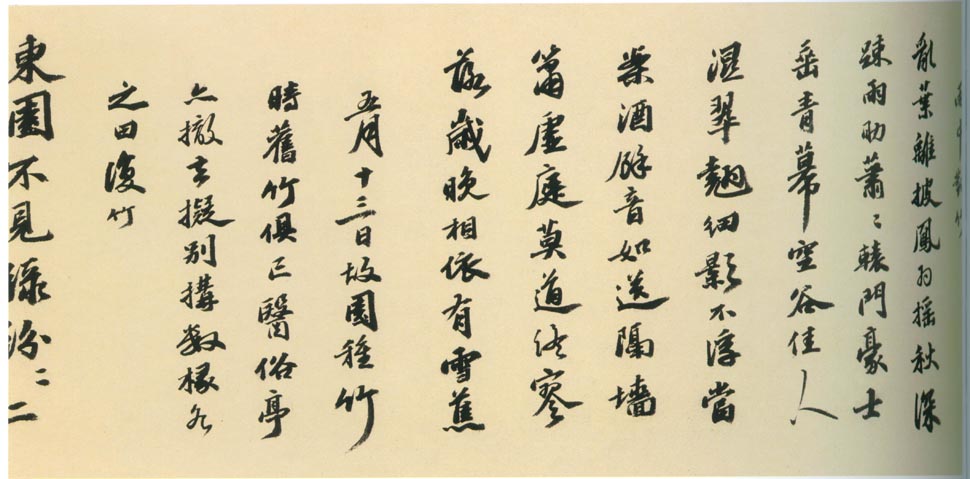 雨中對竹
亂葉離披鳳羽搖秋深
踈雨助蕭〻轅門豪士
垂青幕空谷佳人
濕翠翹細影不浮當
酒餘音如送隔墻
簫虛庭莫道終寥
落歲晚相依有雪蕉
五月十三日故園種竹
時舊竹俱亡醫俗亭
亦撤去擬別搆數椽名
之曰復竹
東園不見綠紛〻二